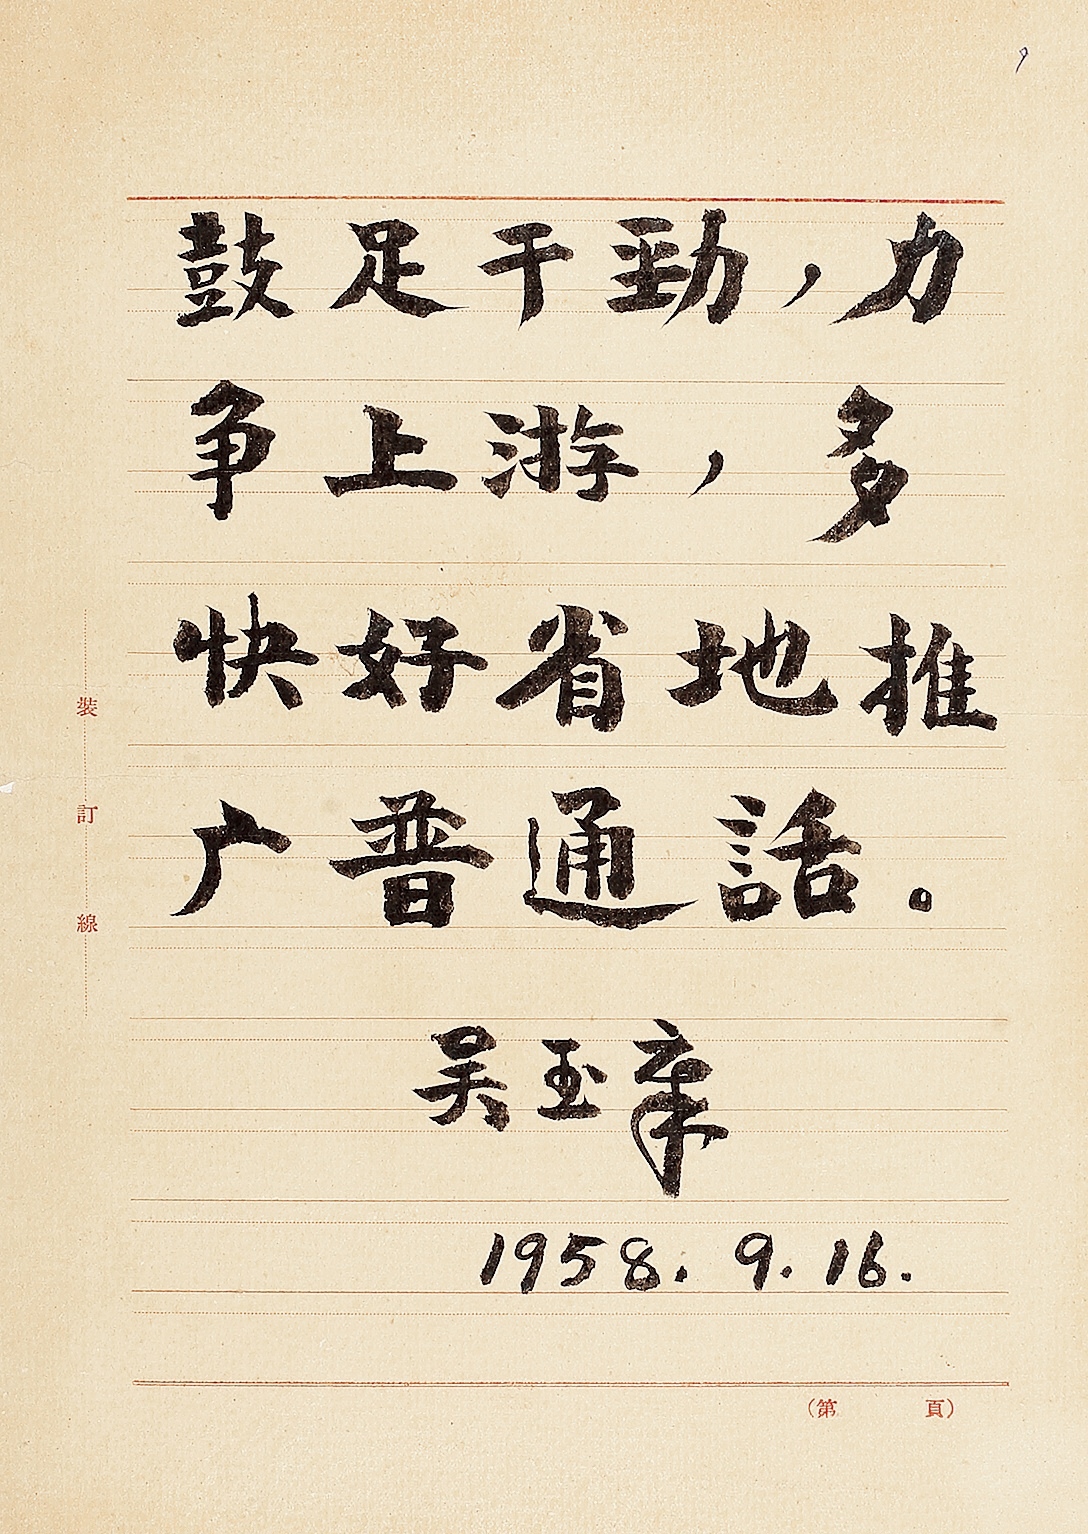 鼓足干勁，力
争上游，多
快好省地推
广普通話。
吴玉章
1958. 9. 16.
裝訂線
（第　　頁）